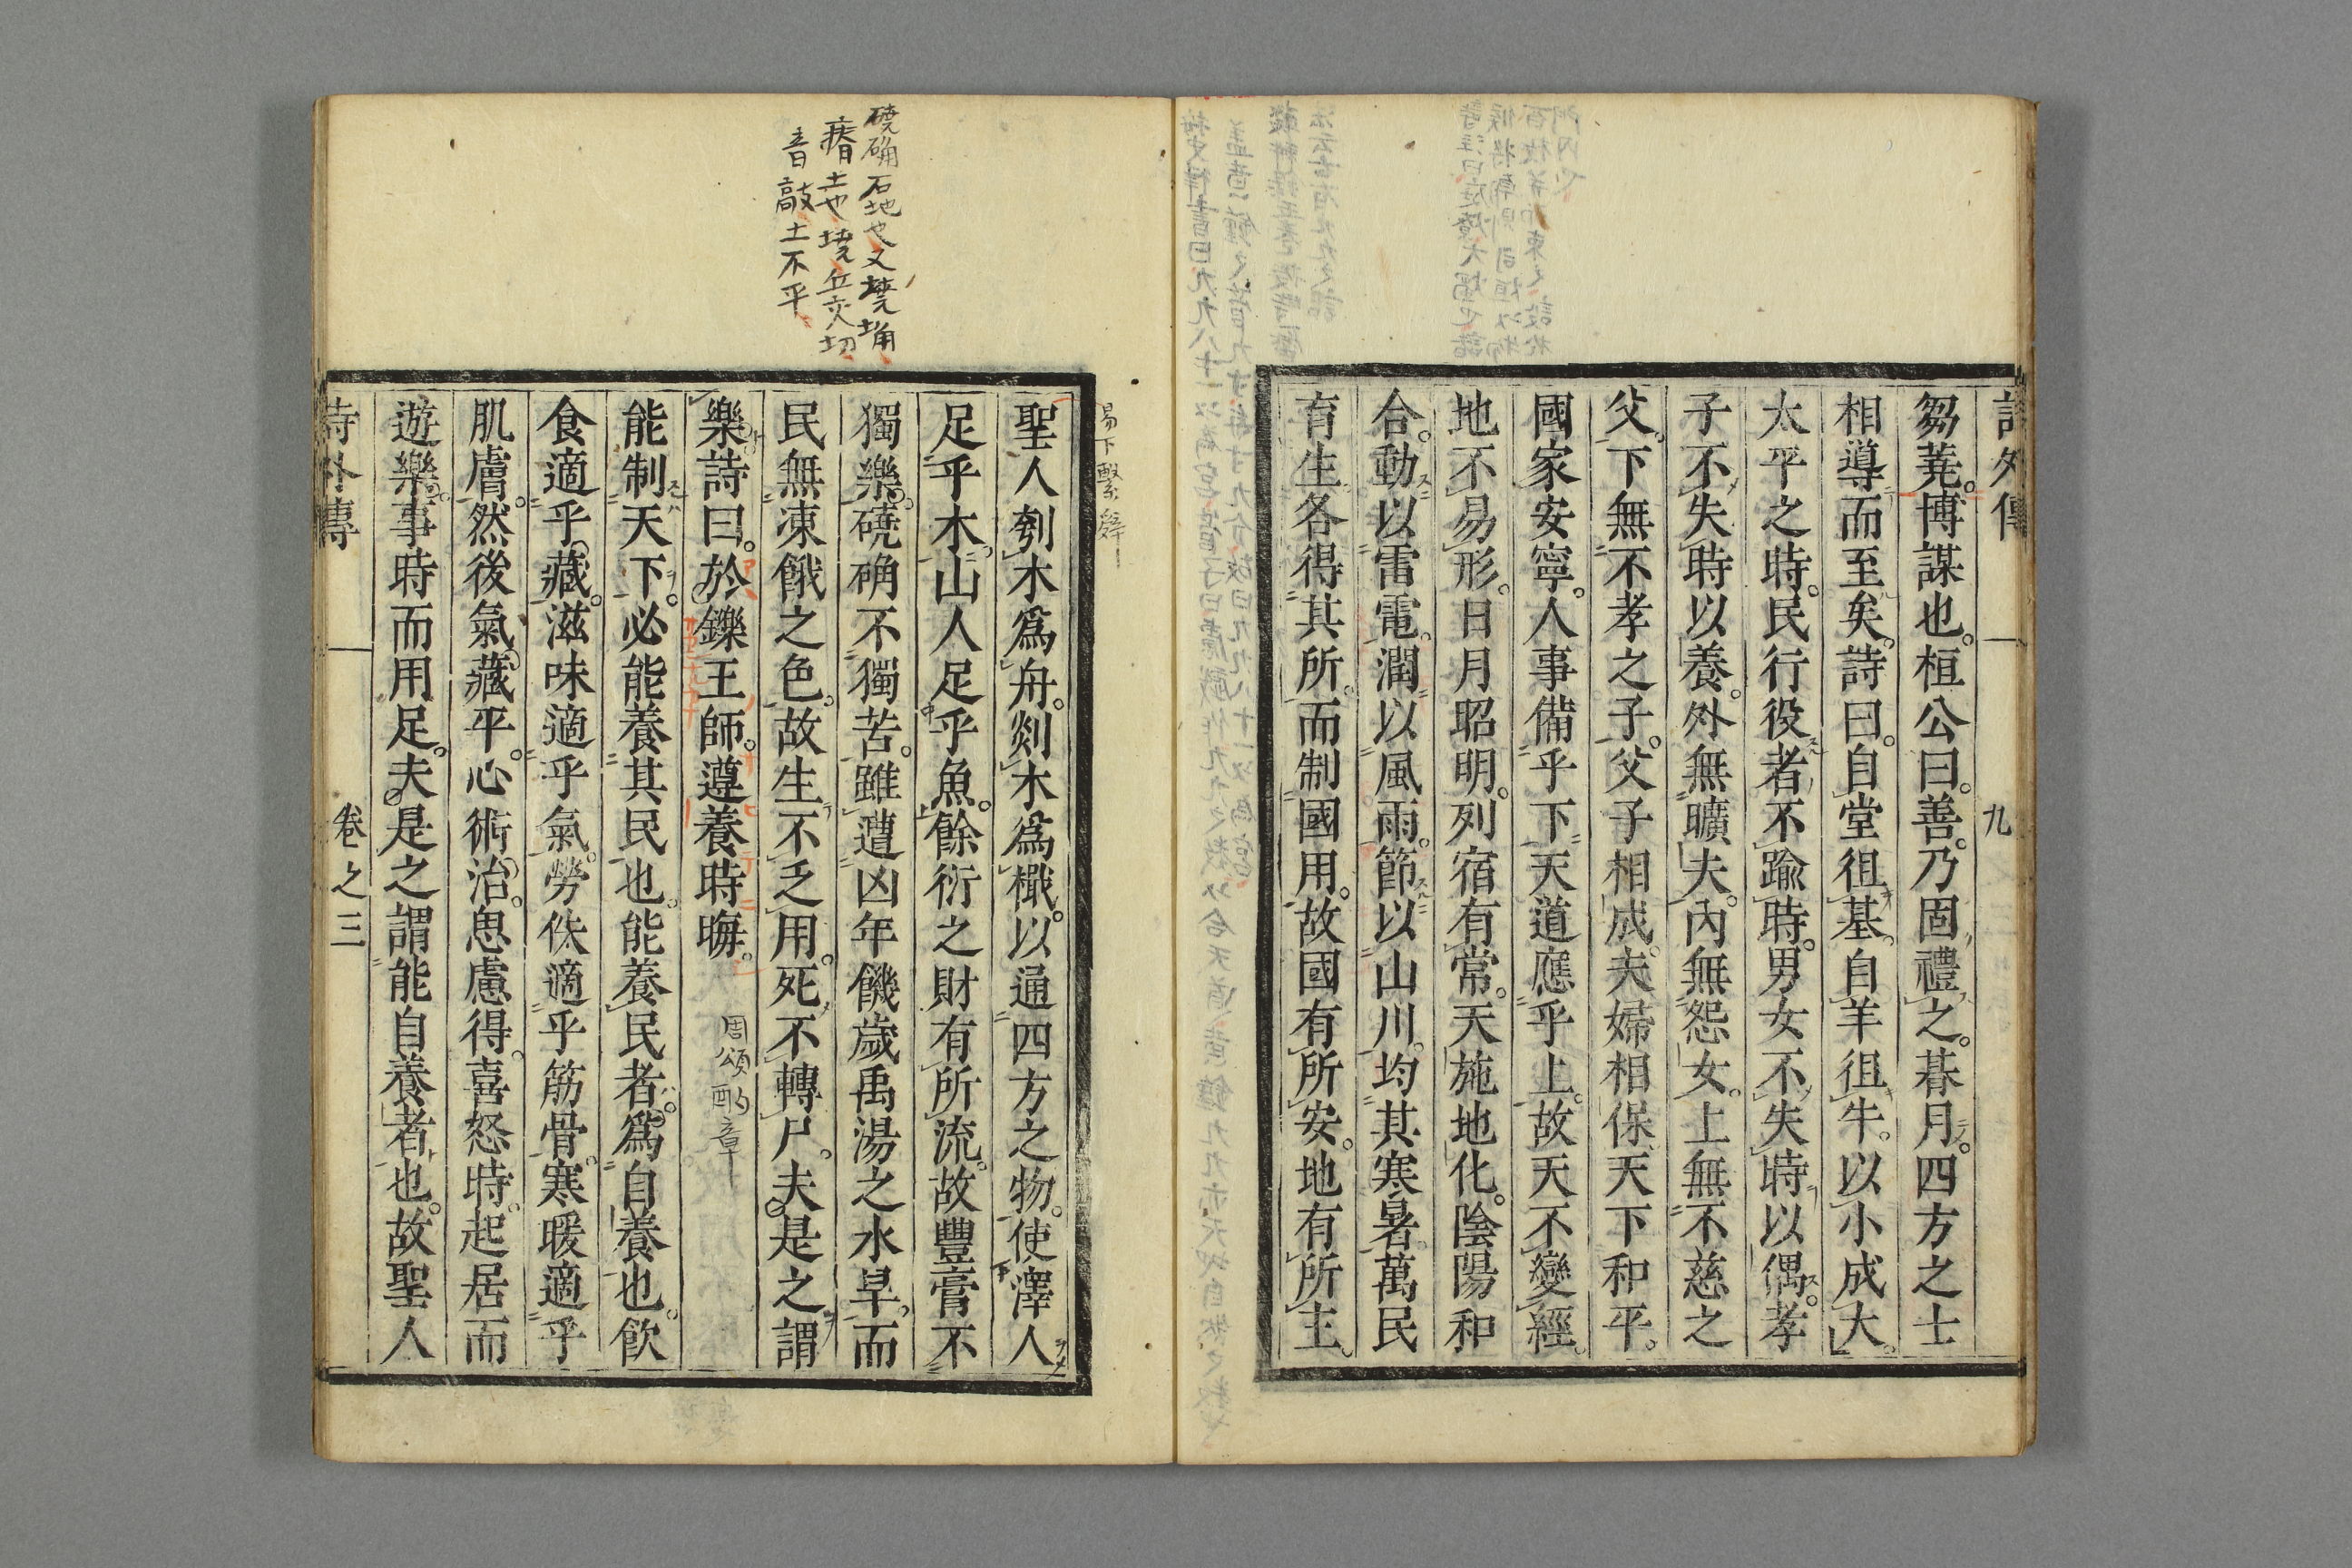 詩外傳
九
芻蕘。博謀也。桓公曰。善。乃固禮之。朞月。四方之士
相導而至矣。詩曰。自堂徂基。自羊徂牛。以小成大。
太平之時。民行役者。不踰時。男女不失時以偶。孝
子不失時以養。外無曠夫。內無怨女。上無不慈之
父。下無不孝之子。父子相成。夫婦相保。天下和平。
國家安寧。人事備乎下。天道應乎上。故天不變經。
地不易形。日月昭明。列宿有常。天施地化。陰陽和
合。動以雷電。潤以風雨。節以山川。均其寒暑。萬民
育生各得其所。而制國用。故國有所安。地有所主。
易下繫辭
聖人刳木爲舟。剡木爲檝。以通四方之物。使澤人
足乎木。山人足乎魚。餘衍之財有所流。故豐膏不
獨樂。磽确不獨苦。雖遭凶年饑歲禹湯之水旱。而
民無凍餓之色。故生不乏用。死不轉尸。夫是之謂
樂。詩曰。於鑠王師。遵養時晦。
周頌酌章
能制天下。必能養其民也。能養民者。爲自養也。飲
食適乎藏。滋味適乎氣。勞佚適乎筋骨。寒暖適乎
肌膚。然後氣藏平。心術治。思慮得。喜怒時。起居而
遊樂。事時而用足。夫是之謂能自養者也。故聖人
詩外傳
卷之三
磽确石地也又墝埆
瘠土也墝丘交切
音敲土不平